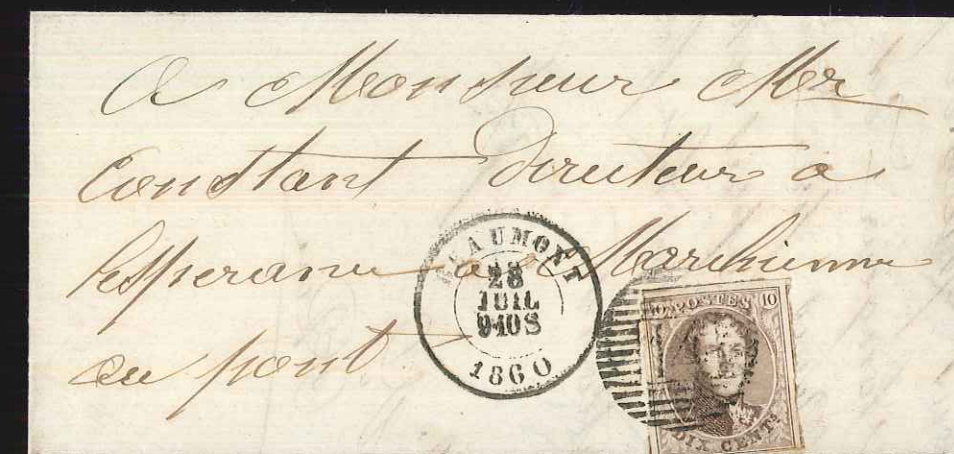 A Monsieur Mr
Constant directeur a
lesperance a Marchienne
au pont
BEAUMONT
28
JUIL
9-10S
1860
10 POSTES 10
DIX CENTS